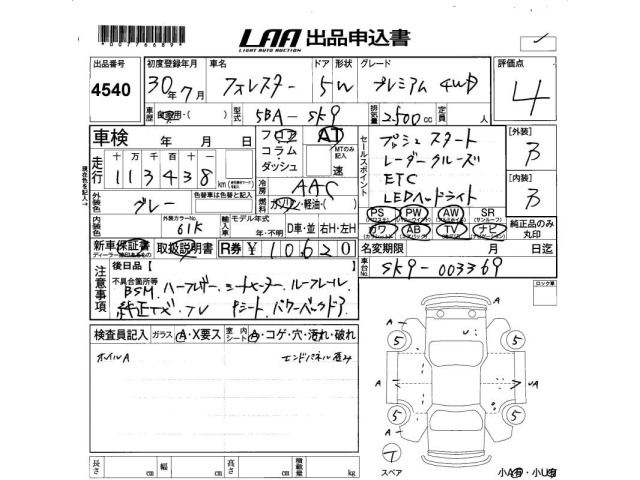 *00776689*
LAA 出品申込書
LIGHT AUTO AUCTION
出品番号 初度登録年月 車名 ドア 形状 グレード 評価点
4540 30年7月 フォレスター 5W プレミアム 4WD 4
車歴 自家用・( ) 型式 5BA-SK9 排気量 2500cc 定員 人
車検 年 月 日 フロア AT
コラム・ MTのみ記入
ダッシュ 速
走行 十万千百十
113438 km
冷房 AAC
外装色 グレー 色替車は色替と記入 燃料 ガソリン・軽油・( )
外装カラーNo. 61K 輸入車 モデル年式 年・不明 D車・並 右H・左H
新車保証書 取扱説明書 R券 ¥10620
ディーラー
セールスポイント
プッシュスタート
レーダークルーズ
ETC
LEDヘッドライト
PS PW AW SR (サンルーフ)
カワ AB TV ナビ
[外装] B
[内装] B
純正品のみ丸印
名変期限 月 日迄
車台No. SK9-003369
現在色を記入→
注意事項 後日品【 】
不具合箇所等
BSM、ハーフレザー、シートヒーター、ルーフレール、
純正ナビ・TV Pシート、パワーバックドア
ロック車
検査員記入 ガラス A・X要ス 室内シート A・コゲ・穴・汚れ・破れ
ホイルA エンドパネル歪み
A A
5 5
U
A UA
5 5
A A
T
スペア 小A有・小U有
長さ cm 幅 cm 高さ cm 積載量 kg